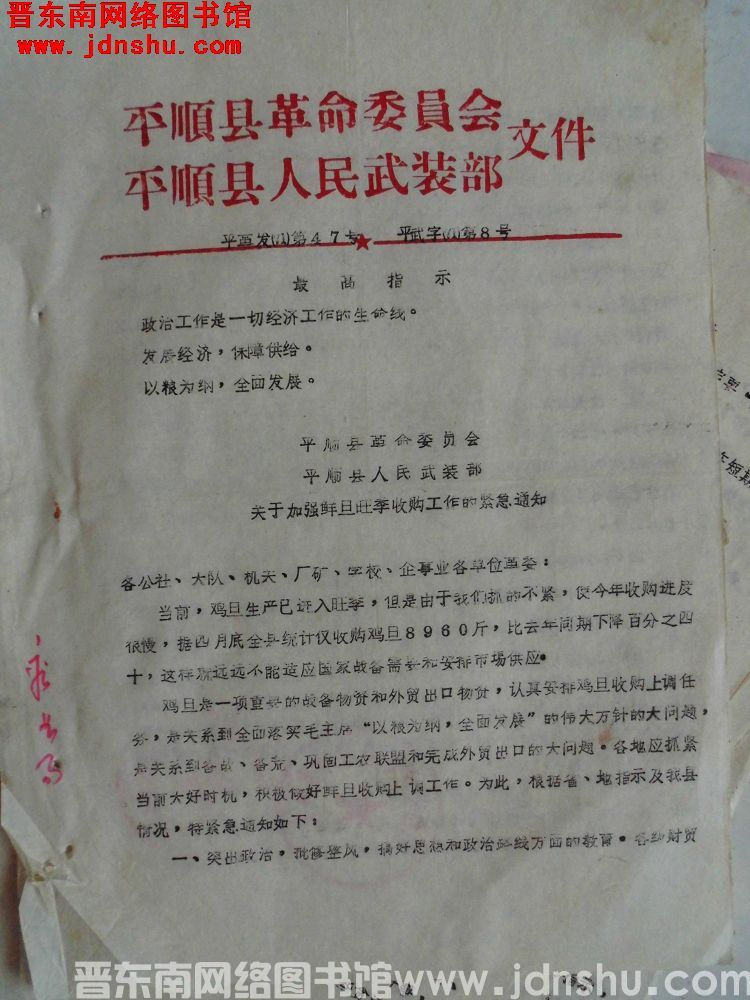 晋东南网络图书馆
www.jdnshu.com
平順县革命委員会
平順县人民武装部
文件
平革发(71)第47号 平武字(71)第8号
最高指示
政治工作是一切经济工作的生命线。
发展经济，保障供给。
以粮为纲，全面发展。
平顺县革命委员会
平顺县人民武装部
关于加强鲜旦旺季收购工作的紧急通知
各公社、大队、机关、厂矿、学校、企事业各单位革委：
当前，鸡旦生产已进入旺季，但是由于我们抓的不紧，使今年收购进度
很慢，据四月底全县统计仅收购鸡旦8960斤，比去年同期下降百分之四
十，这样就远远不能适应国家战备需要和安排市场供应。
鸡旦是一项重要的战备物资和外贸出口物资，认真安排鸡旦收购上调任
务，是关系到全面落实毛主席“以粮为纲，全面发展”的伟大方针的大问题，
是关系到备战、备荒、巩固工农联盟和完成外贸出口的大问题。各地应抓紧
当前大好时机，积极做好鲜旦收购上调工作。为此，根据省、地指示及我县
情况，特紧急通知如下：
一、突出政治，批修整风，搞好思想和政治路线方面的教育。各级财贸
短期
晋东南网络图书馆 www.jdnshu.com